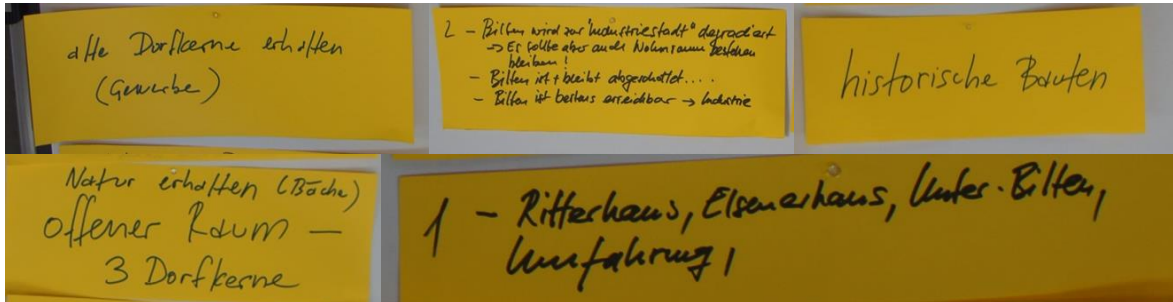 alte Dorfkerne erhalten
(Gewerbe)
2 - Bilten wird zur "Industriestadt" degradiert
→ Es sollte aber auch Wohnraum bestehen
bleiben!
- Bilten ist + bleibt abgeschottet....
- Bilten ist bestens erreichbar → Industrie
historische Bauten
Natur erhalten (Bäche)
offener Raum -
3 Dorfkerne
1 - Ritterhaus, Elsenerhaus, Unter-Bilten,
Umfahrung,